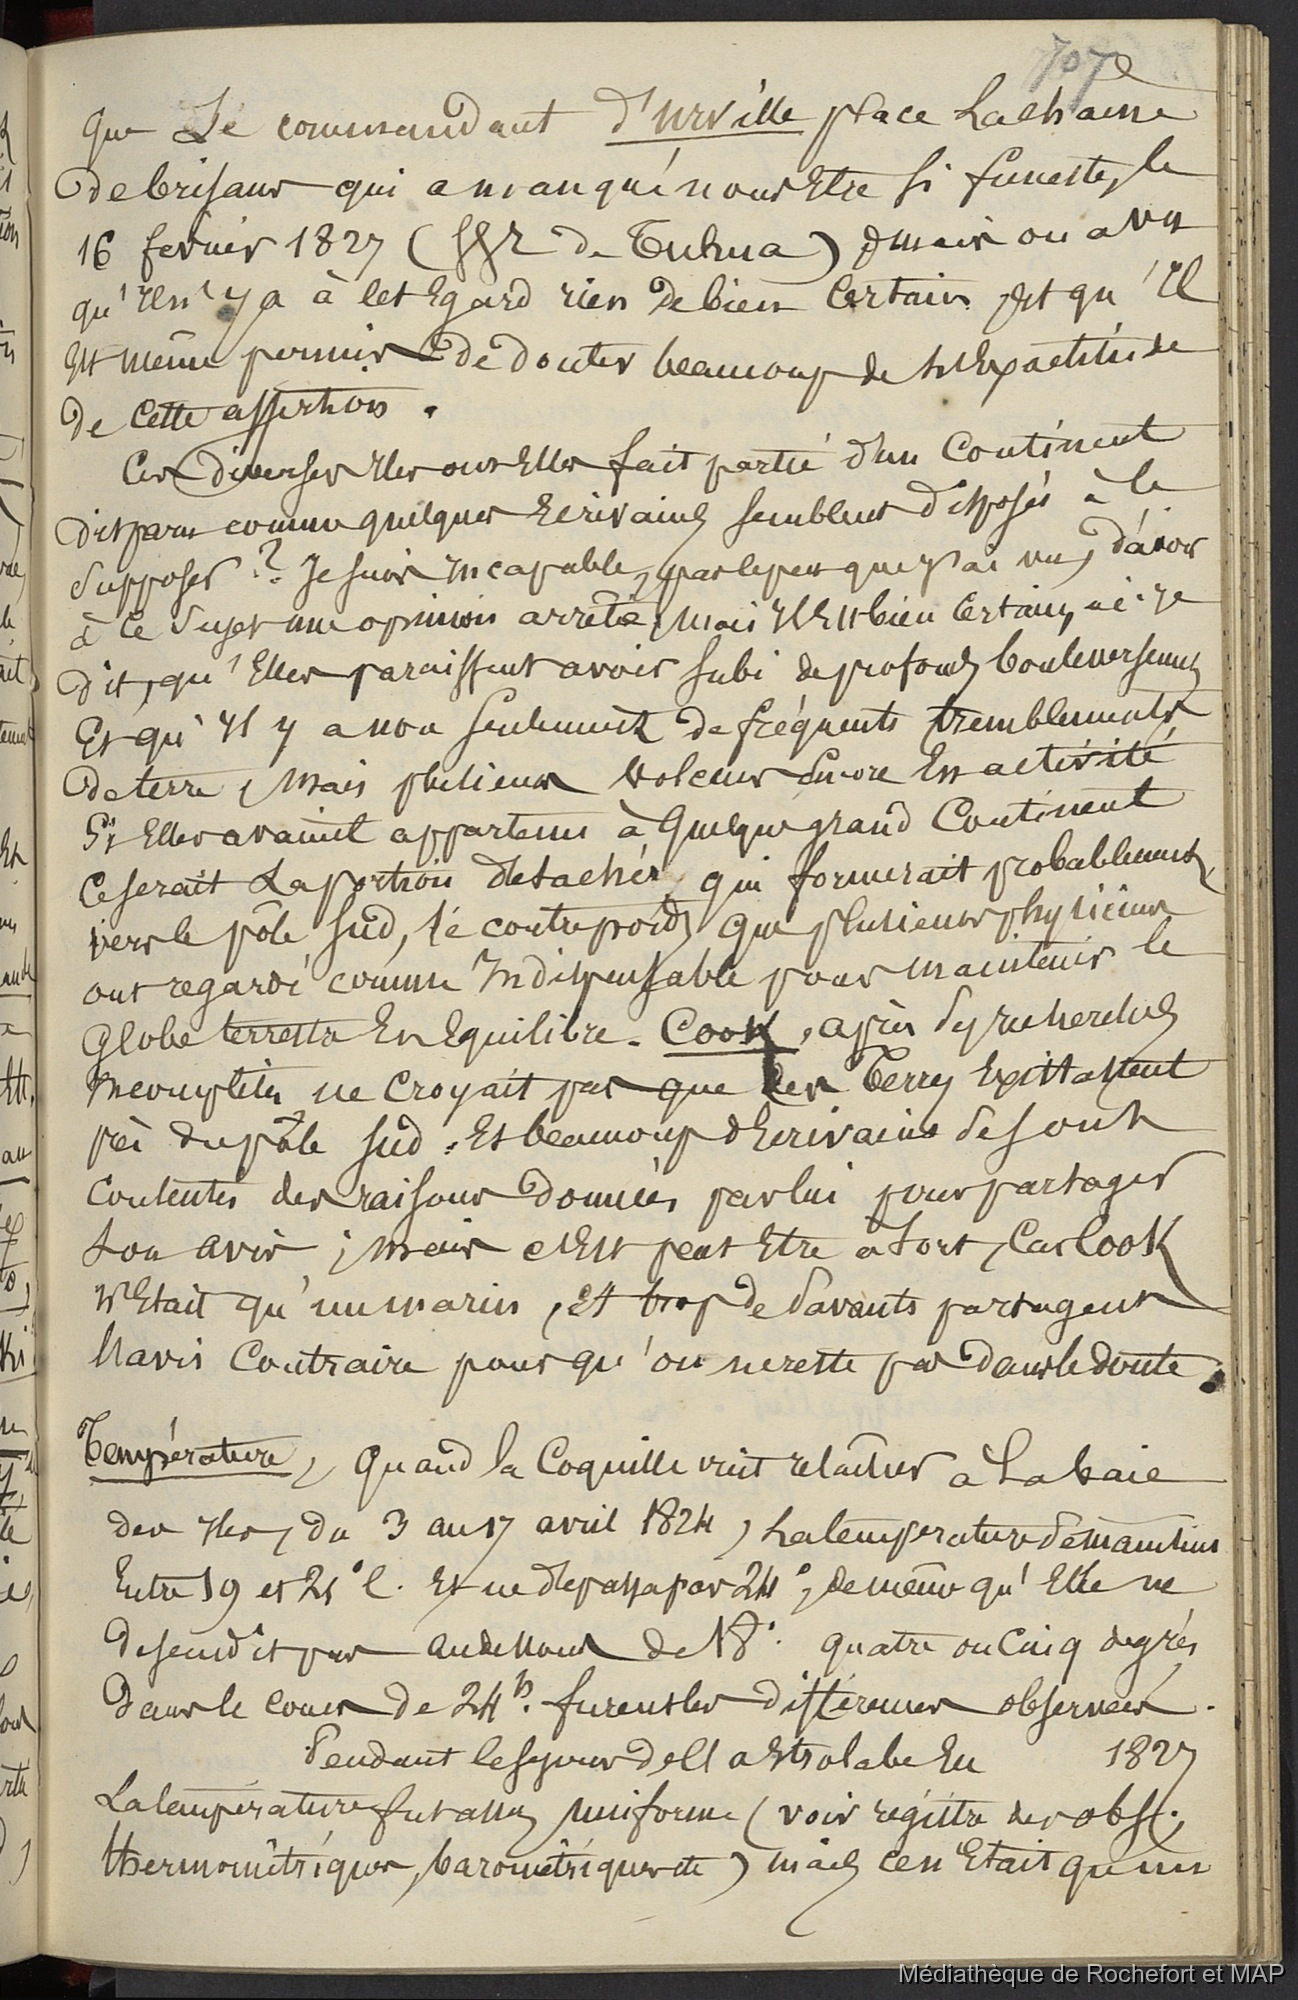 707
que le commandant d'urville place la chaine
de brisans qui a manqué nous etre si funeste, le
16 fevrier 1827 ( de Tukua) mais on a vu
qu'il n'y a à cet Egard rien de bien Certain et qu'il
Est même permis de douter beaucoup de l'Exactitude
de Cette assertion.
Ces diverses iles ont Elles fait partie d'un Continent
disparu comme quelques Ecrivains semblent disposés à le
supposer? Je suis incapable, par le peu que j'ai vu, d'avoir
à ce sujet une opinion arrêtée, mais il Est bien Certain, ai-je
dit, qu'Elles paraissent avoir subi de profonds bouleversemens
Et qu'il y a non seulement de fréquents tremblements
de terre, mais plusieurs volcans Encore En activité
Si Elles avaient appartenu à quelque grand Continent
ce serait la portion détachée, qui formerait probablement,
vers le pôle sud, le contrepoids que plusieurs physiciens
ont regardé comme Indispensable pour maintenir le
Globe terrestre En Equilibre. Cook, après des recherches
incomplètes ne croyait pas que des Terres Existassent
près du pôle sud. Et beaucoup d'Ecrivains se sont
contentés des raisons données par lui pour partager
son avis; mais c'Est peut Etre à tort, Car Cook
n'Etait qu'un marin, Et trop de savants partagent
l'avis Contraire pour qu'on ne reste pas dans le doute.
Température, quand la Coquille vint relâcher à la baie
des iles, du 3 au 17 avril 1824, la température se maintint
Entre 19 et 21° c. Et ne dépassa pas 24°, de même qu'Elle ne
descendit pas au dessous de 18°. quatre ou Cinq degrés
dans le cours de 24h. furent les différences observées.
Pendant le séjour de l'astrolabe En 1827
La température fut assez uniforme (voir régistre des obs.
thermométriques, barométriques etc) mais ce n'Etait qu'un
Médiathèque de Rochefort et MAP